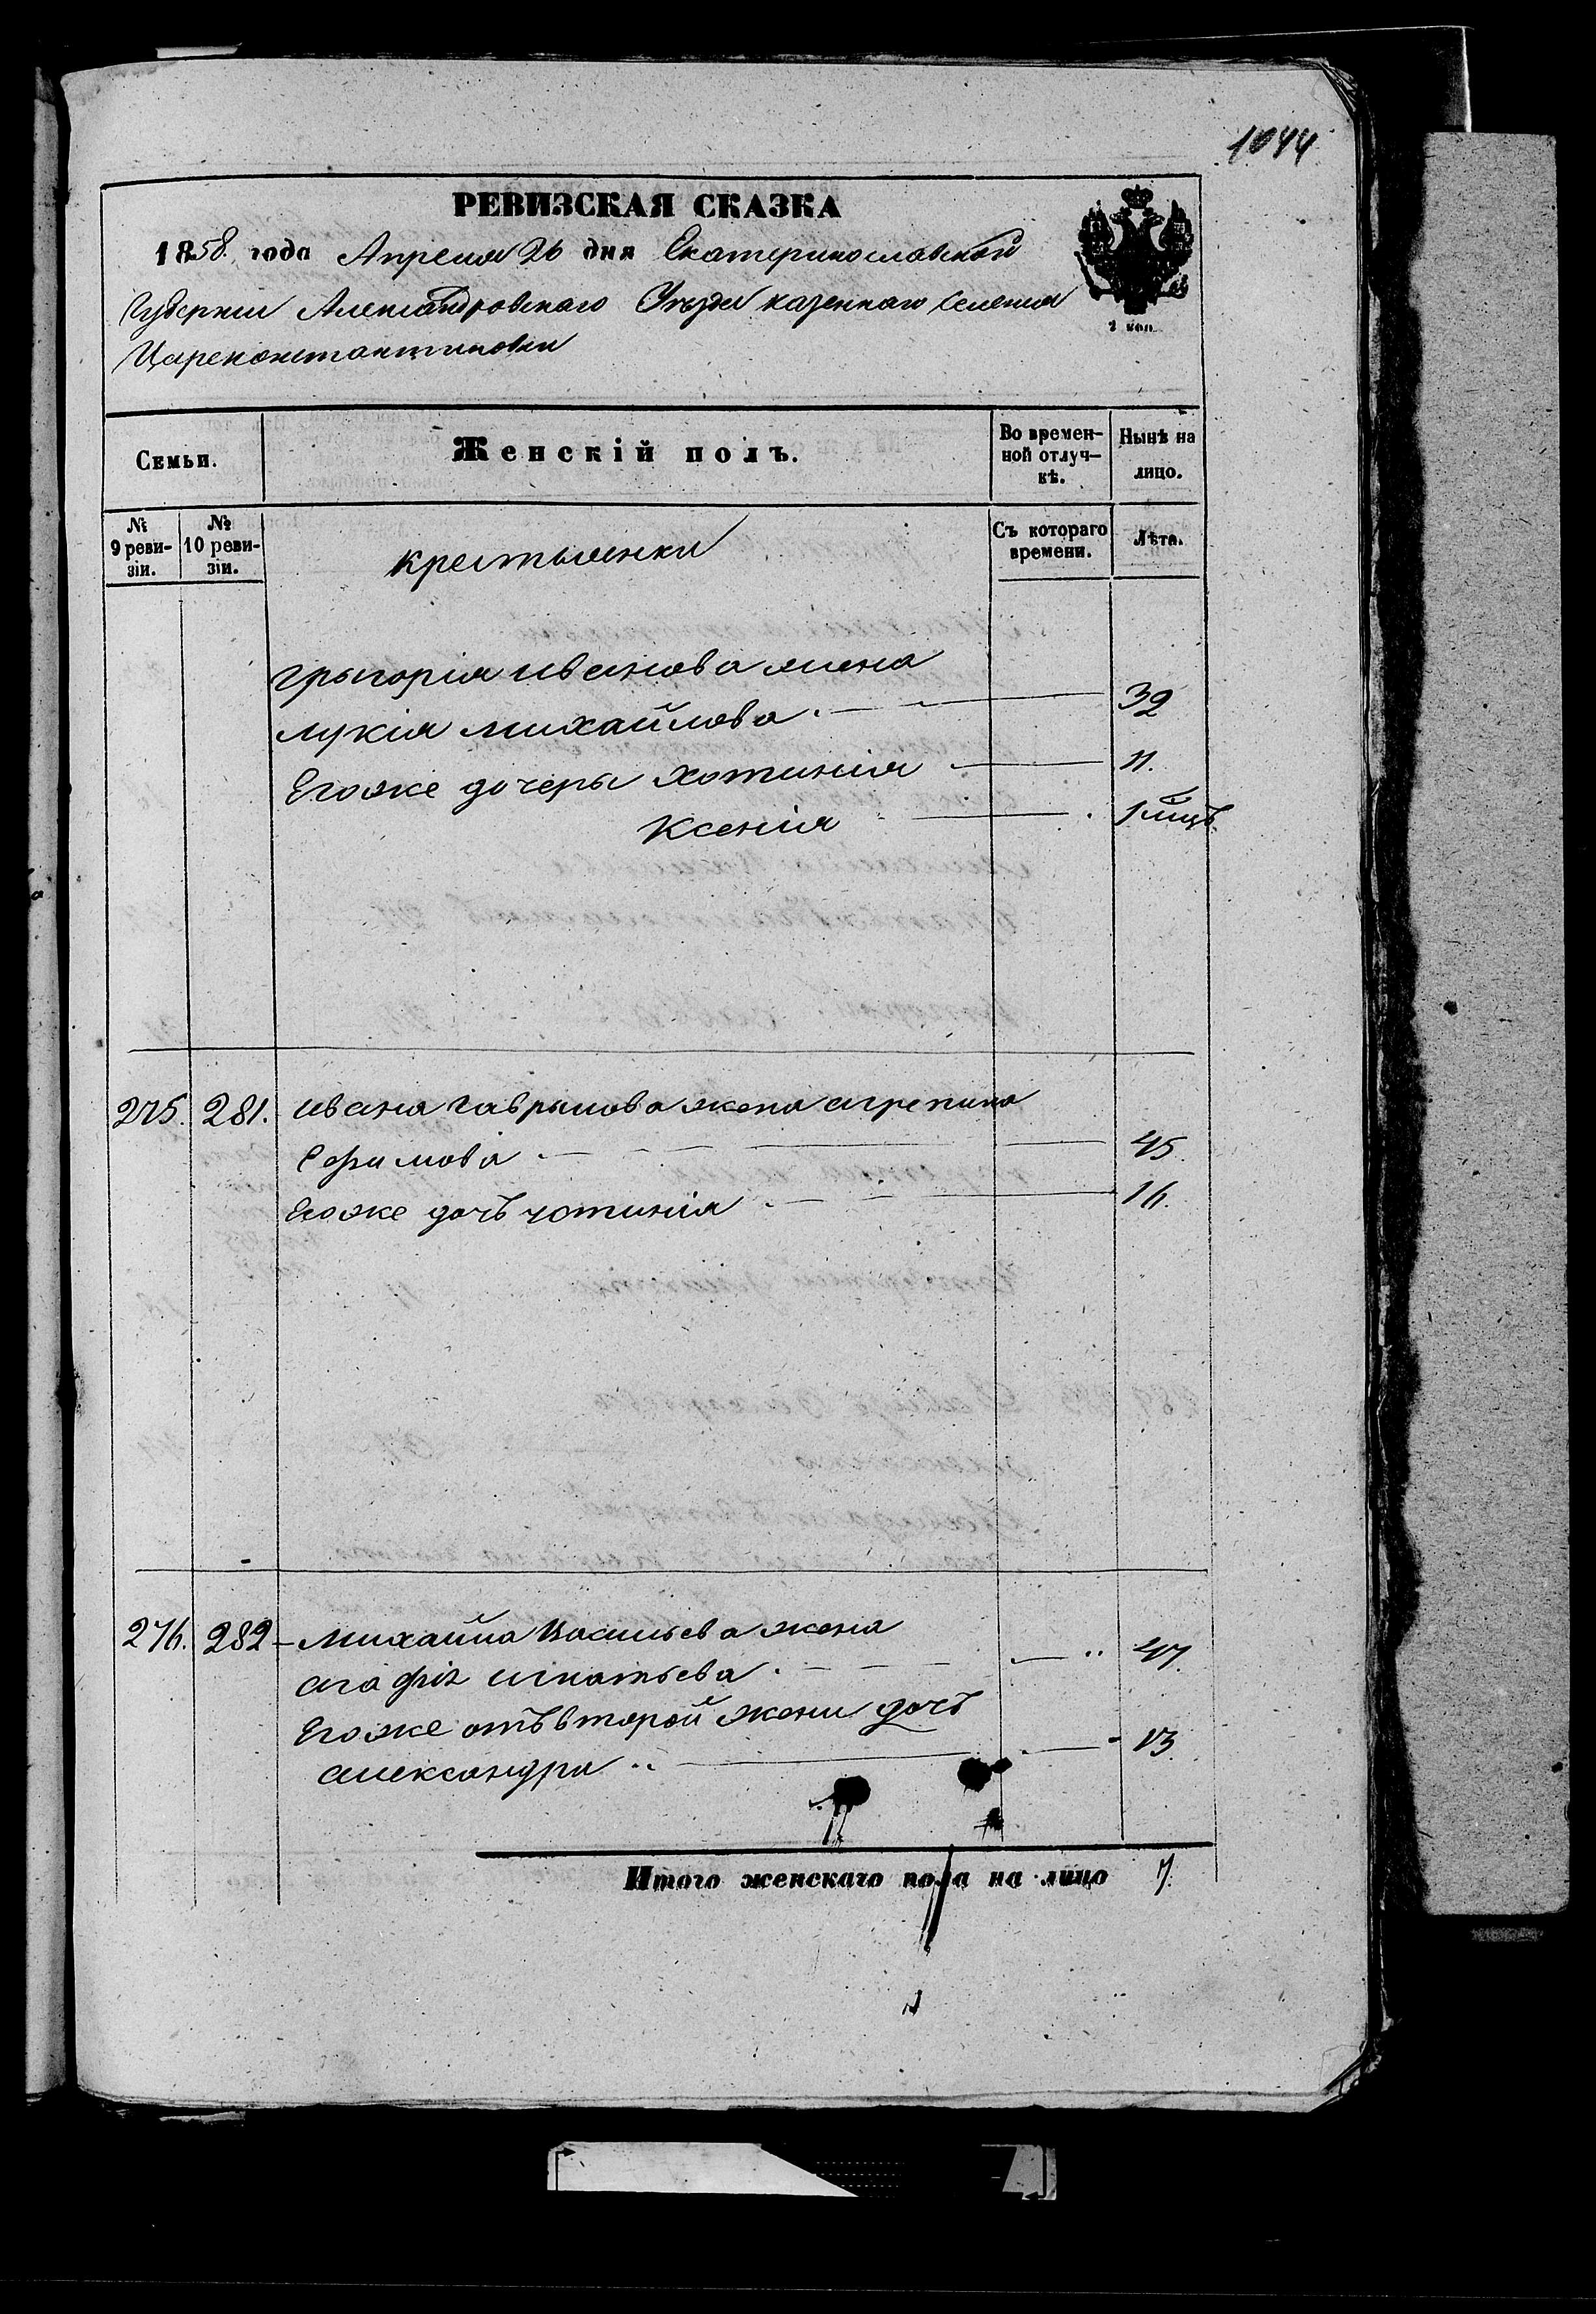 1044
РЕВИЗСКАЯ СКАЗКА
1858. года Апреля 26 дня Екатеринославской
Губернии Александровскаго Уезда казеннаго селения
Цареконстантиновки
2 коп.
Семьи.
Женскій полъ.
Во времен-
ной отлуч-
кѣ.
Нынѣ на
лицо.
№
9 реви-
зіи.
№
10 реви-
зіи.
крестьянки
Съ котораго
времени.
Лѣта.
Грыгорія иванова жена
лукія михайлова. 32
Егоже дочеры хотинія 11.
Ксенія 1 мцъ.
275. 281. ивана гаврылова жена агрепина
Ефимова 45.
Егоже дочъ хотинія 16.
276. 282 михайла Васильева жена
агафія игнатьева 47.
Егоже отъ второй жени дочъ
александра 13.
Итого женскаго пола на лицо 7.